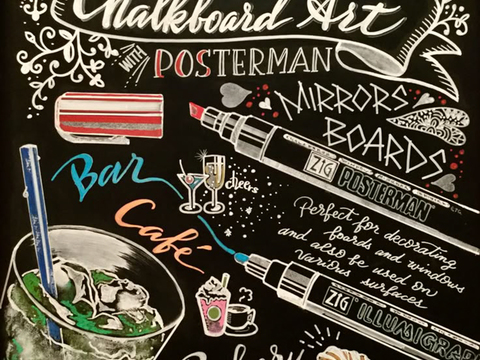 Chalkboard Art
WITH POSTERMAN
MIRRORS
BOARDS
ZIG POSTERMAN
Bar
cheers
Café
Perfect for decorating
boards and windows
and also be used on
various surfaces
ZIG ILLUMIGRAP